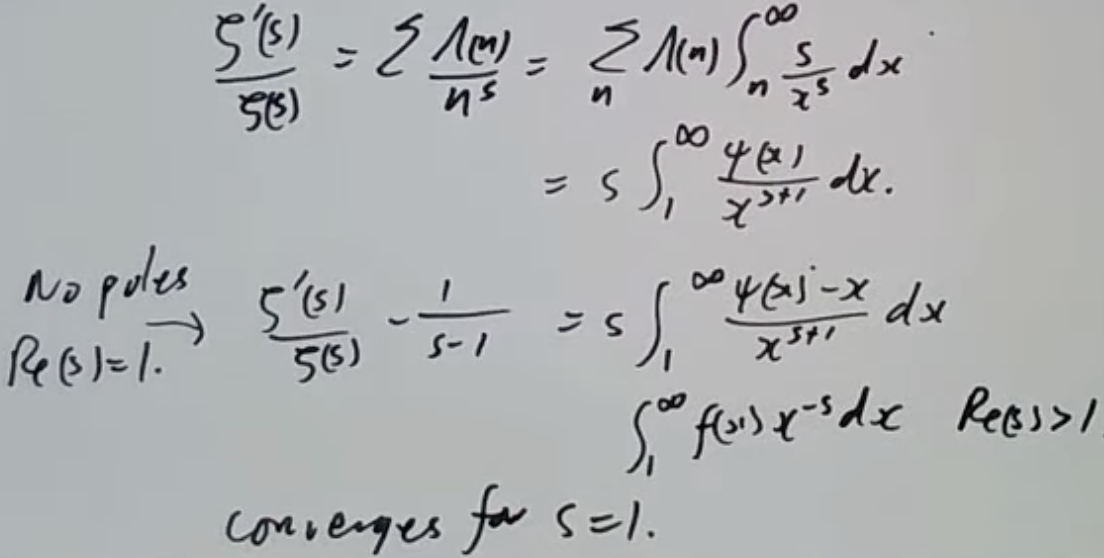 ζ'(s)/ζ(s) = Σ Λ(n)/n^s = Σ_n Λ(n) ∫_n^∞ s/x^s dx
= s ∫_1^∞ ψ(x)/x^{s+1} dx.
No poles
Re(s)=1. → ζ'(s)/ζ(s) - 1/(s-1) = s ∫_1^∞ (ψ(x)-x)/x^{s+1} dx
∫_1^∞ f(x) x^{-s} dx Re(s)>1
converges for s=1.